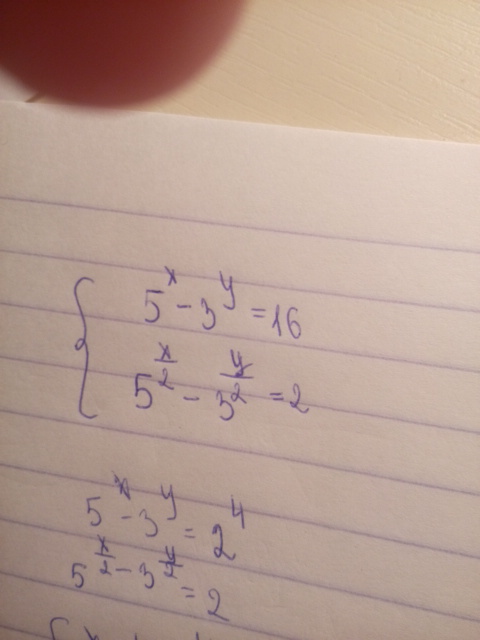 5^x - 3^y = 16
5^(x/2) - 3^(y/2) = 2
5^x - 3^y = 2^4
5^(x/2) - 3^(y/2) = 2